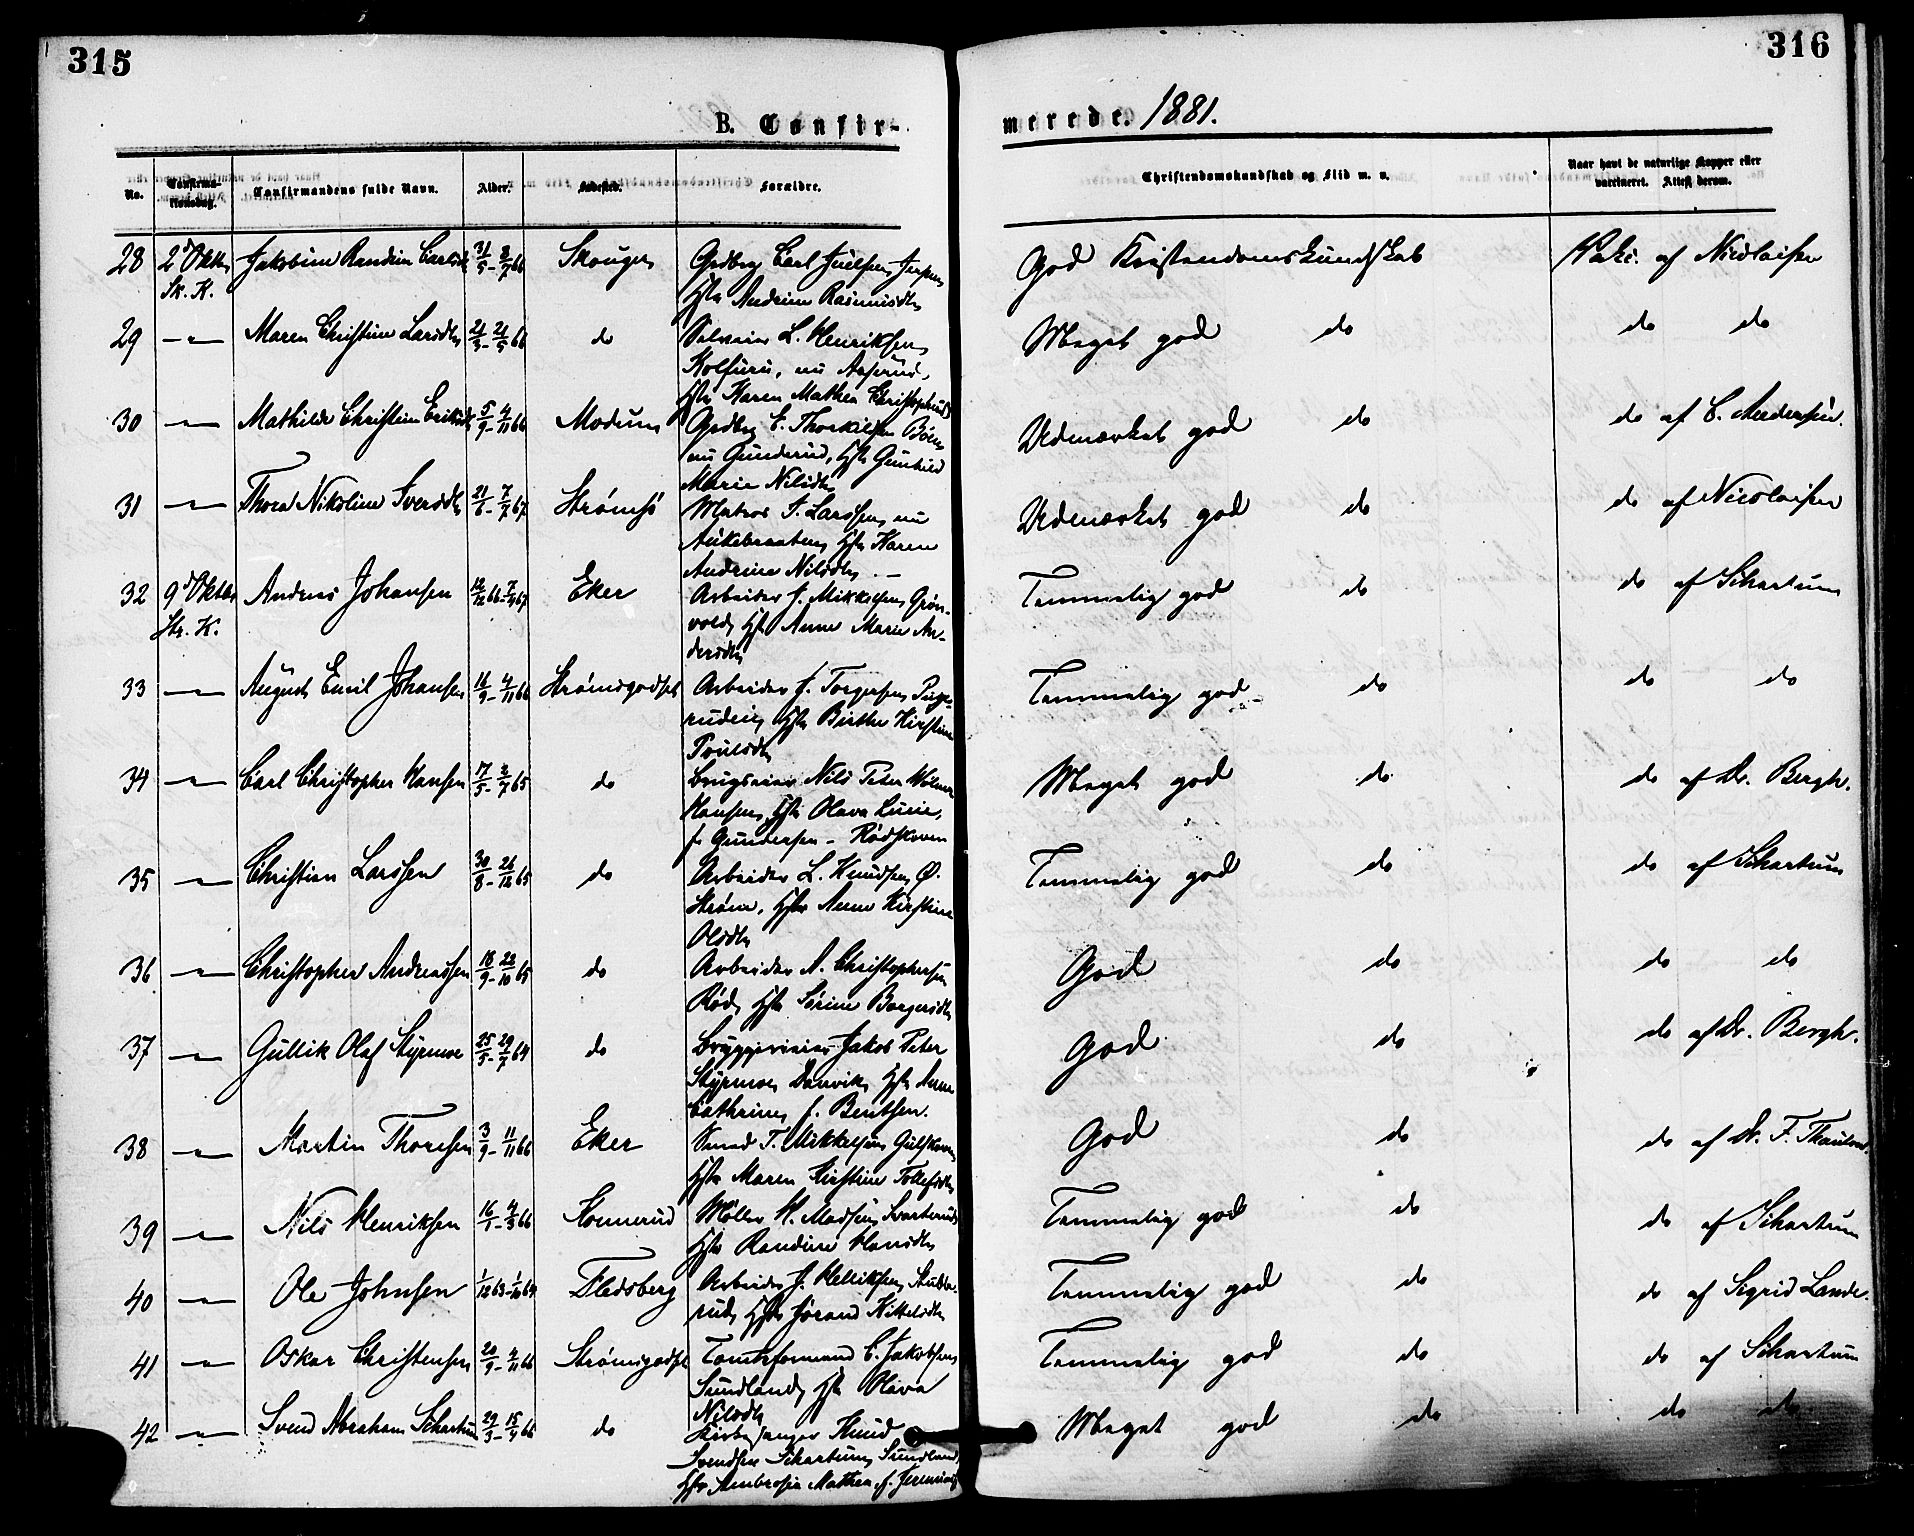 315
316
B. Confir-
merede. 1881.
No.
Confirma-
tionsdag.
Confirmandens fulde Navn.
Alder.
Fødested.
Forældre.
Christendomskundskab og Flid m. v.
Naar havt de naturlige Kopper eller
vaccineret. Attest derom.
28 2d Oktbr Jakobine Randine Carlsdtr 31/5 - 8/7 66 Skouger Grdbrg Carl Juelsen
Sk. K. Hstr Andrine Rasmusdtr
God Kristendomskundskab Vakc. af Nicolaisen
29 -"- Maren Christine Larsdtr do Selveier L. Henriksen
Kolfuru, nu Aaserud,
Hstr Karen Mathea Christophersdtr
Meget god do do do
30 -"- Mathilde Christine Eriksdtr 5/9 - 4/11 66 Modum Grdbrg E. Thorkilsen
nu Gunderud, Hstr Gunhild
Marie Nilsdtr
Udmærket god do do af C. Andersen.
31 -"- Thora Nikoline Iversdtr 21/6 - 7/7 67 Strømsø Matros I. Larssen, nu
Hstr Karen
Andrine Nilsdtr. -
Udmærket god do do af Nicolaisen
32 9d Oktbr Andreas Johansen Eker Arbeider J. Mikkelsen, Grøn-
Str. K. vold, Hstr Anne Marie An-
dersdtr
Temmelig god do do af Schartum
33 -"- August Emil Johansen 16/9 - 4/11 66 Strømsgodset Arbeider J. Torgersen,
Hstr Birthe Kirstine
Poulsdtr
Temmelig god do do do
34 -"- Carl Christopher Hansen 17/5 - 2/7 65 do Brugseier Nils Peter
Hansen, Hstr Olava Lucie,
f. Gundersen - Rødskoven
Meget god do do af Dr. Bergh.
35 -"- Christian Larssen 30/8 - 26/12 65 do Arbeider L. Knudsen, Ø.
Strøm, Hstr Anne Kirstine
Olsdtr
Temmelig god do do af Schartum
36 -"- Christopher Andreassen 18/9 - 22/10 65 do Arbeider A. Christophersen
Rød, Hstr Sørine Borgersdtr
God do do do
37 -"- Gullik Olaf Styrmoe 25/5 - 29/7 64 do Bryggerieier Jakob Peter
Styrmoe, Danvik, Hstr Anne
Cathrine, f. Bentsen.
God do do af Dr. Bergh.
38 -"- Martin Thoresen 3/9 - 11/11 66 Eker Smed T. Mikkelsen, Gulskoven,
Hstr Maren Kirstine Tollefsdtr
God do do af Dr. F. Thaulow.
39 -"- Nils Henriksen 16/1 - 4/3 66 Konnerud Møller H. Madsen, Svarterud
Hstr Randine Hansdtr
Temmelig god do do af Schartum
40 -"- Ole Johnsen 1/12 63 - 1/10 64 Flesberg Arbeider J. Helliksen,
rud, Hstr Jørand Kittelsdtr
Temmelig god do do af Sigrid Lande.
41 -"- Oskar Christensen 20/9 - 4/11 66 Strømsgodset Tomteformand C. Jakobsen
Sundland, Hstr Olava
Nilsdtr
Temmelig god do do af Schartum
42 -"- Svend Abraham Schartum 29/3 - 15/4 66 do Kirkesanger Knud
Svendsen Schartum, Sundland,
Hstr Ambrosia Mathea, f. Jeremiassen
Meget god do do do